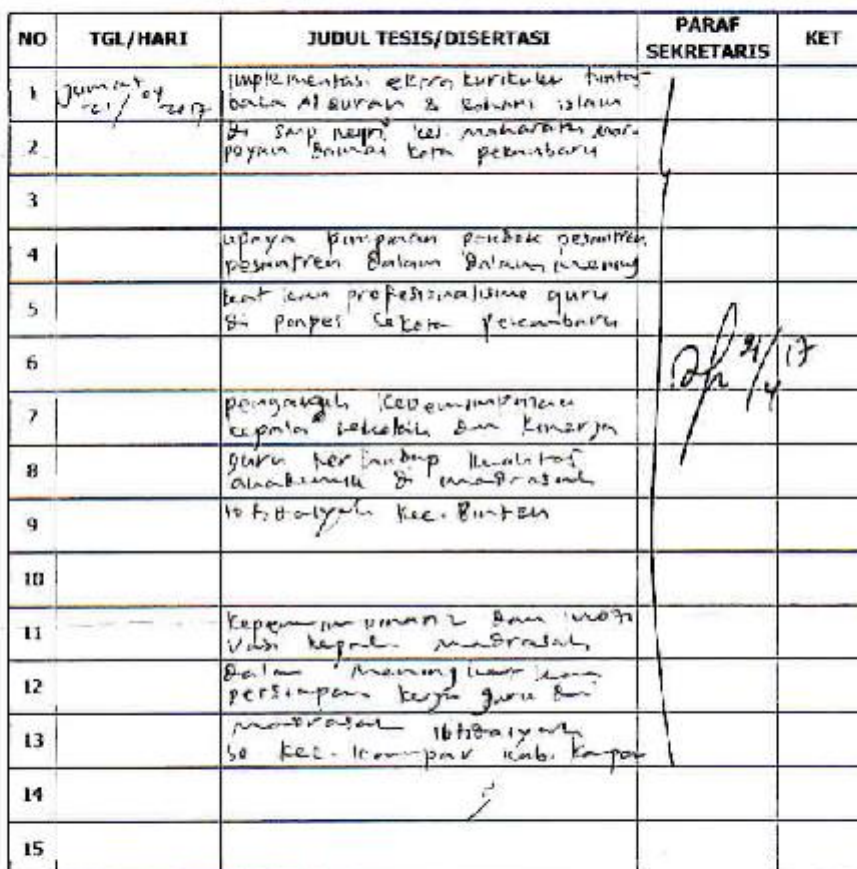 NO TGL/HARI JUDUL TESIS/DISERTASI PARAF SEKRETARIS KET
1 Jum'at 21/04 2017 implementasi ekstra kurikuler tuntas
baca Al Quran & rohani islam
2 di smp negri kec. maharatu mar
poyan damai kota pekanbaru
3
4 upaya pimpinan pondok pesantren
pesantren dalam dalam mening
5 kat kan profesionalisme guru
di ponpes sekota pekanbaru
6
21/4 17
7 pengaruh kepemimpinan
kepala sekolah dan kinerja
8 guru terhadap kualitas
akademik di madrasah
9 ibtidaiyah kec. Bintan
10
11 kepemimpinan dan moti
vasi kepala madrasah
12 dalam meningkatkan
kerja guru
13 madrasah ibtidaiyah
se kec. kampar kab. Kampar
14
15